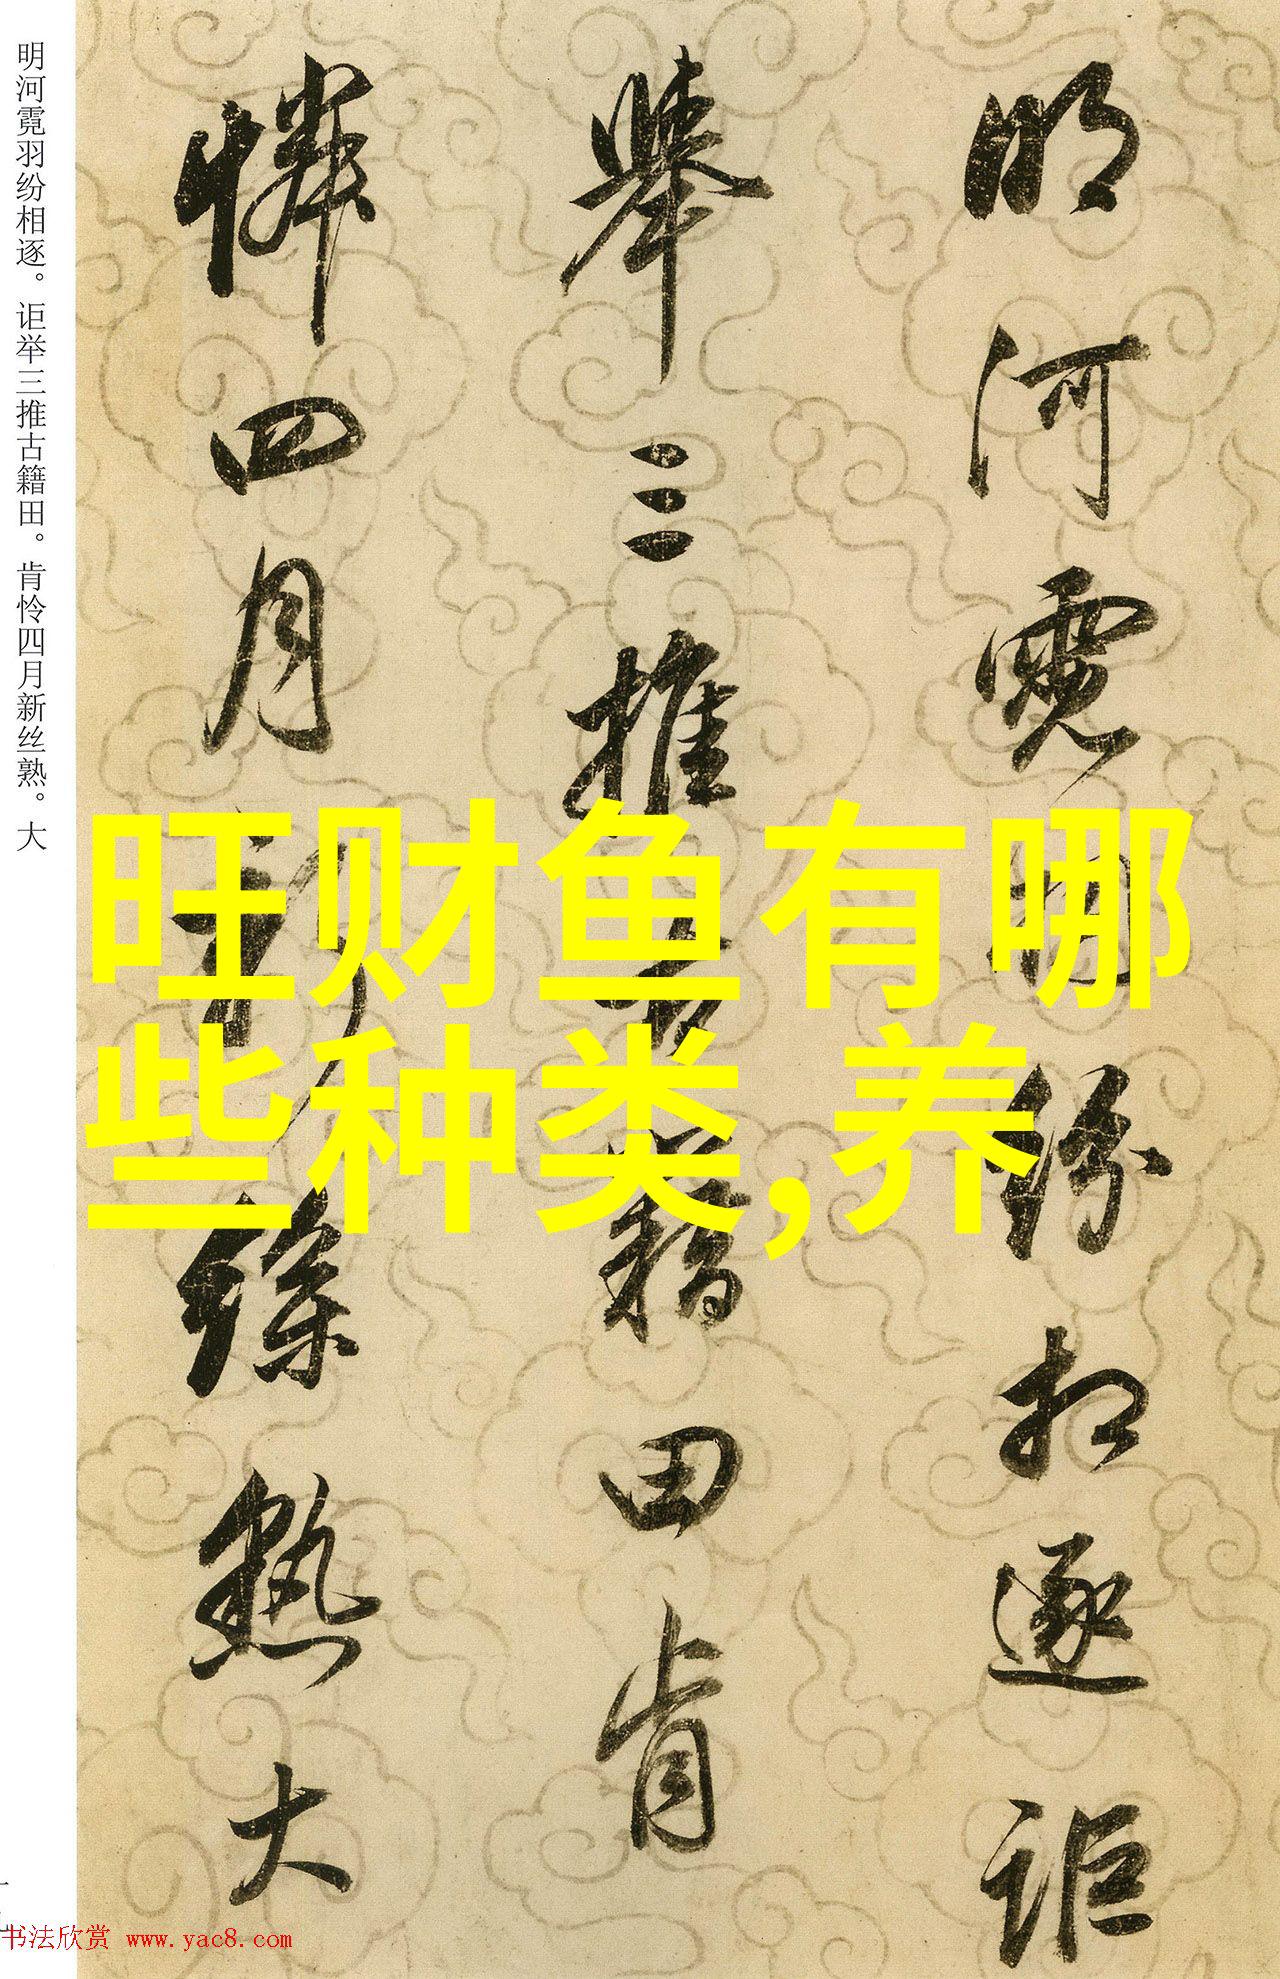 明河霓羽纷相逐。讵举三推古籍田。肯怜四月新丝熟。大
明河霓羽纷相逐讵
舉三推古籍田肯
憐四月新絲熟大
旺财鱼有哪
些种类,养
书法欣赏 www.yac8.com